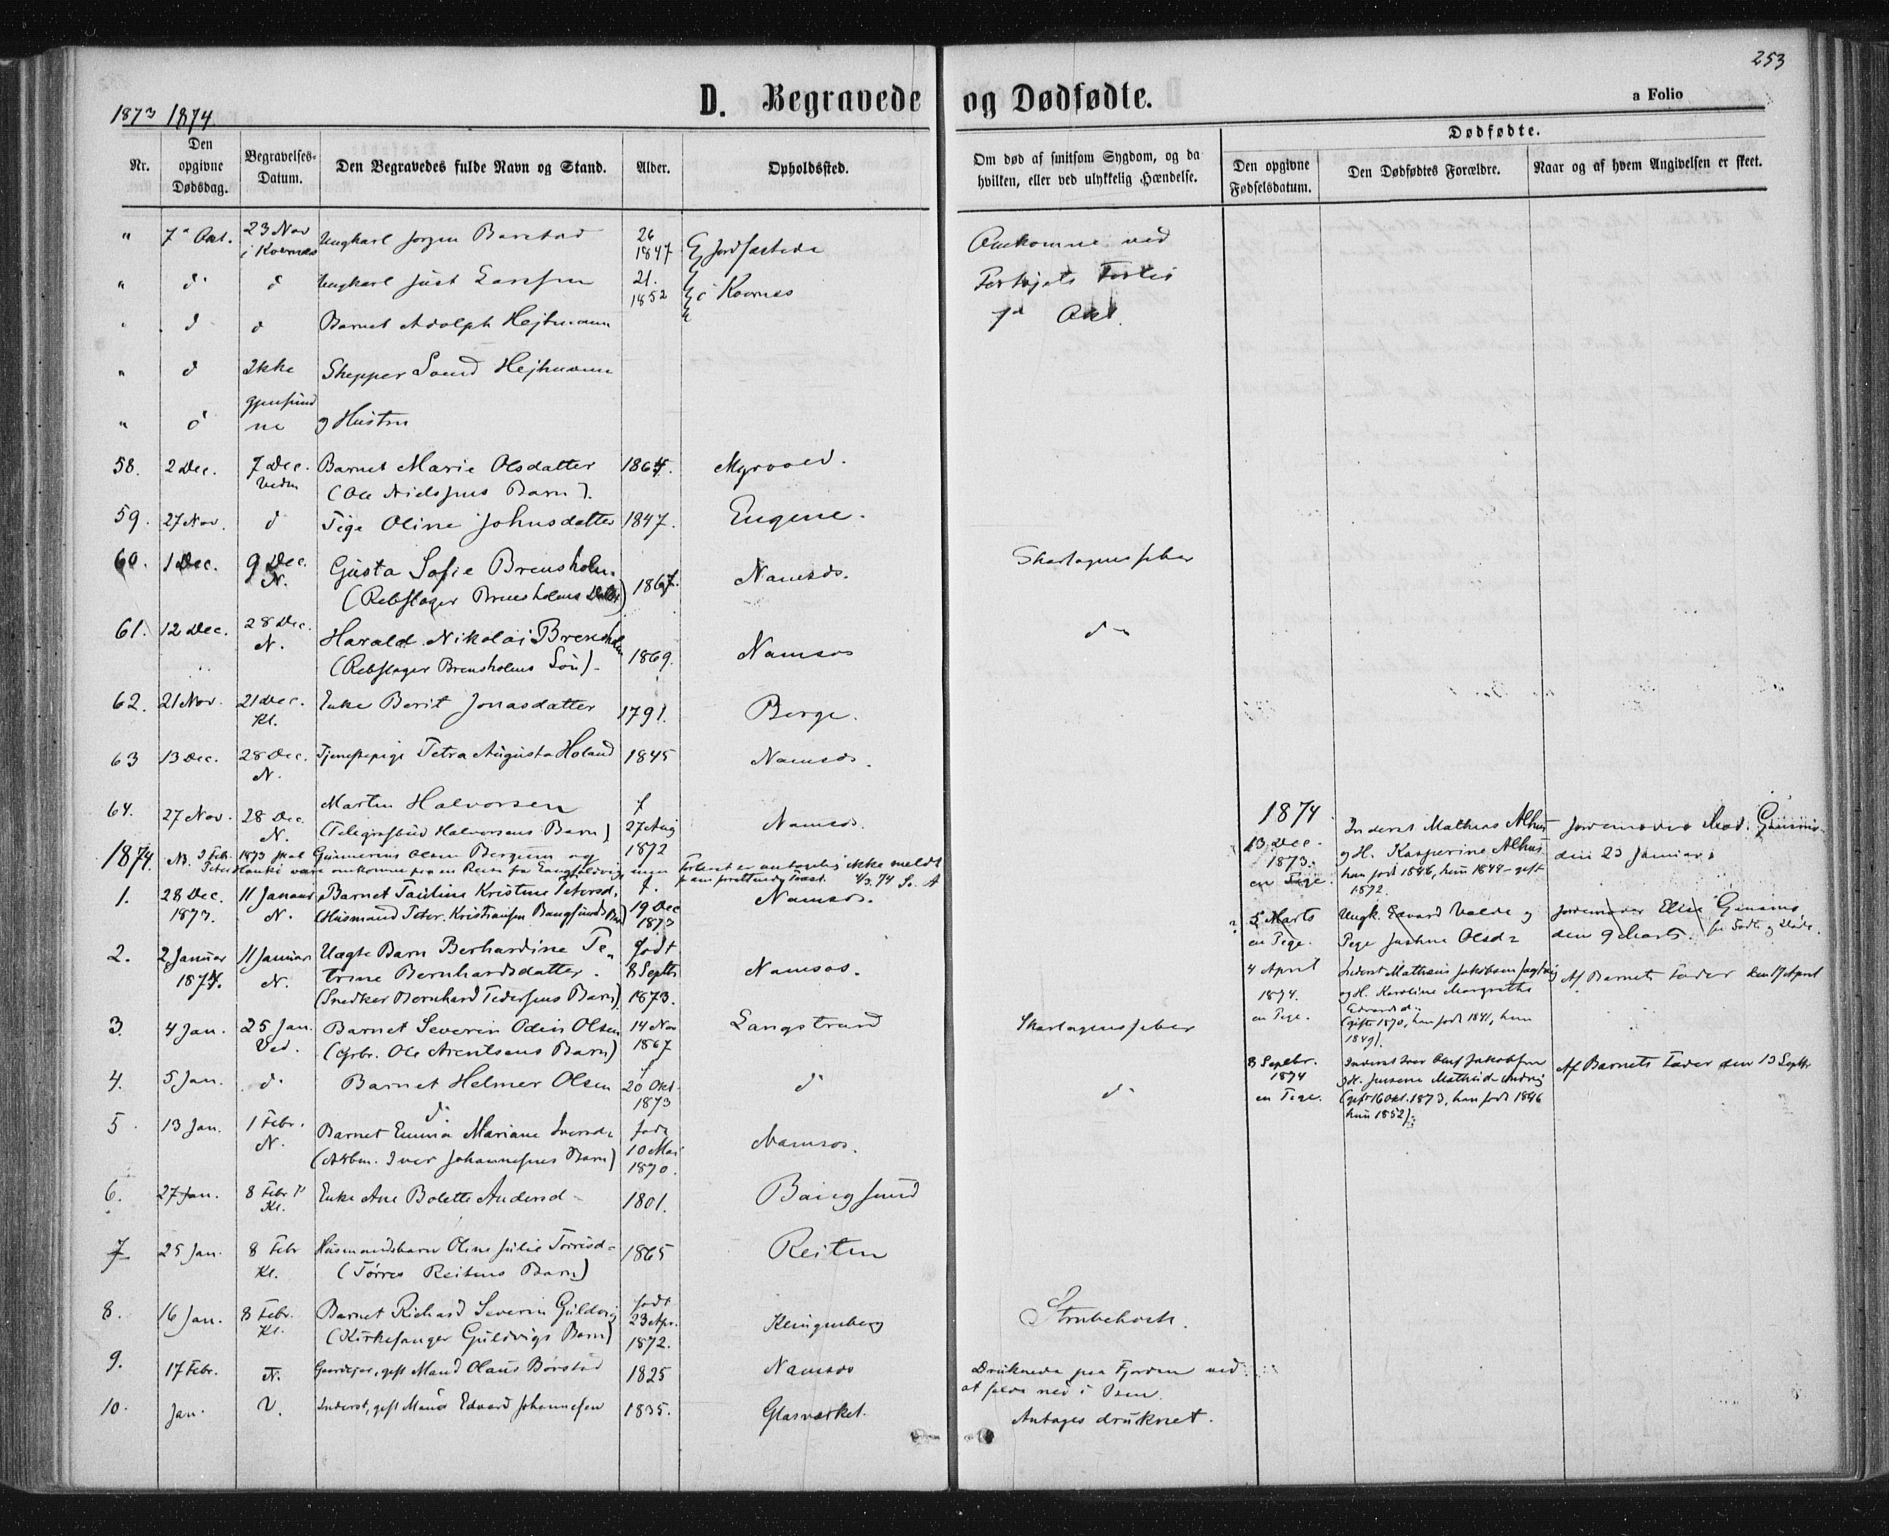 253
1873 1874.
D. Begravede og Dødfødte.
a Folio
Nr.
Den opgivne Dødsdag.
Begravelses-Datum.
Den Begravedes fulde Navn og Stand.
Alder.
Opholdssted.
Om død af smitsom Sygdom, og da hvilken, eller ved ulykkelig Hændelse.
Dødfødte.
Den opgivne Fødselsdatum.
Den Dødfødtes Forældre.
Naar og af hvem Angivelsen er skeet.
" 7de Okt. 23 Nov Ungkarl Jørgen Barstad 26 1847 Ej Jordfæstede Omkomne ved
" d d Ungkarl Just Larssen 21. 1852 i Forliis
" d d Barnet Adolph Hejhmann
" d Ikke Skipper Hejhmann
" d gjenfund ne og Hustru
58. 2 Dec. 7 Dec. Barnet Marie Olsdatter 1864. Myrvold.
(Ole Nielssens Barn).
59. 27 Nov. d Pige Oline Johnsdatter 1847.
60. 1 Dec. 9 Dec. N. Gusta Sofie Brensholm 1867. Namsos. Skarlagensfeber
(Rebslager Brensholms Datter)
61. 12 Dec. 28 Dec. N. Harald Nikolai Brensholm 1869. Namsos do
(Rebslager Brensholms Søn).
62. 21 Nov. 21 Dec. Kl. Enke Berit Jonasdatter 1791. Berge.
63 13 Dec. 28 Dec. N. Tjenestepige Petra Augusta Holand 1845 Namsos.
64. 27 Nov. 28 Dec. N. Martin Halvorsen f 27 Aug 1872 Namsos.
(Telegrafbud Halvorsens Barn)
1874. NB. 3 Febr. 1873 skal Gunnerius Olsen Bergum og
omkomne paa en Reise fra men ikke meldt
4/3.74
1. 28 Dec. 1873. 11 Januar N. Barnet Pauline Kristine Petersd. f. 19 Dec 1873 Namsos.
(Husmand Peter Kristiansen Bangsunds Barn)
2. 2 Januar 1874. 11 Januar N. Uægte Barn Berhardine Petrine Bernhardsdatter. født 8 Septbr 1873. Namsos.
(Snedker Bernhard Pedersens Barn)
3. 4 Jan. 25 Jan. Ved. Barnet Severin Odin Olsen 14 Nov 1867 Langstrand Skarlagensfeber
(Grbr. Ole Arentsens Barn)
4. 5 Jan. do Barnet Helmer Olsen f 20 Okt. 1873 do do
do
5. 13 Jan. 1 Febr. N. Barnet Emma Mariane Iversd. født 10 Mai 1870. Namsos.
(Arbm. Iver Johannesens Barn)
6. 27 Jan. 8 Febr. Kl. Enke Ane Bolette Andersd 1801. Bangsund
7 25 Jan. 8 Febr Kl. Husmandsbarn Oline Julie Tørrisd 1865 Reiten
(Tørres Reitens Barn)
8. 16 Jan. 8 Febr. Kl. Barnet Richard Severin Guldvig født 23 Apr. 1872. Klingenberg Strubehoste.
(Kirkesanger Guldvigs Barn)
9. 17 Febr. N. Gaardejer, gift Mand Olaus Børstad 1825 Namsos Druknede paa Fjorden ved
at falde ned i Isen.
10. Jan. V. Inderst, gift Mand Edvard Johannesen 1835. Glasværket. Antages druknet.
1874.
13 Dec. 1873. en Pige. Inderst Mathias Alhus og H. Kasperine Alhus han født 1846, hun 1849 gift 1872. Jordemoder Mad. den 23 Januar.
5 Marts en Pige. Ungk. Edvard Valde og Pige Olsd. Jordemoder Elise den 9 Marts.
4 April 1874. en Pige. Inderst Mathæus Jakobsen og H. Karoline Margrethe (gift 1870, han født 1841, hun 1849). Af Barnets Fader den 17 April
8 Septbr. 1874 en Pige. Inderst Iver Jakobsen og H. Jensine (gift 16 Okt. 1873, han født 1846 hun 1852). Af Barnets Fader den 13 Septbr